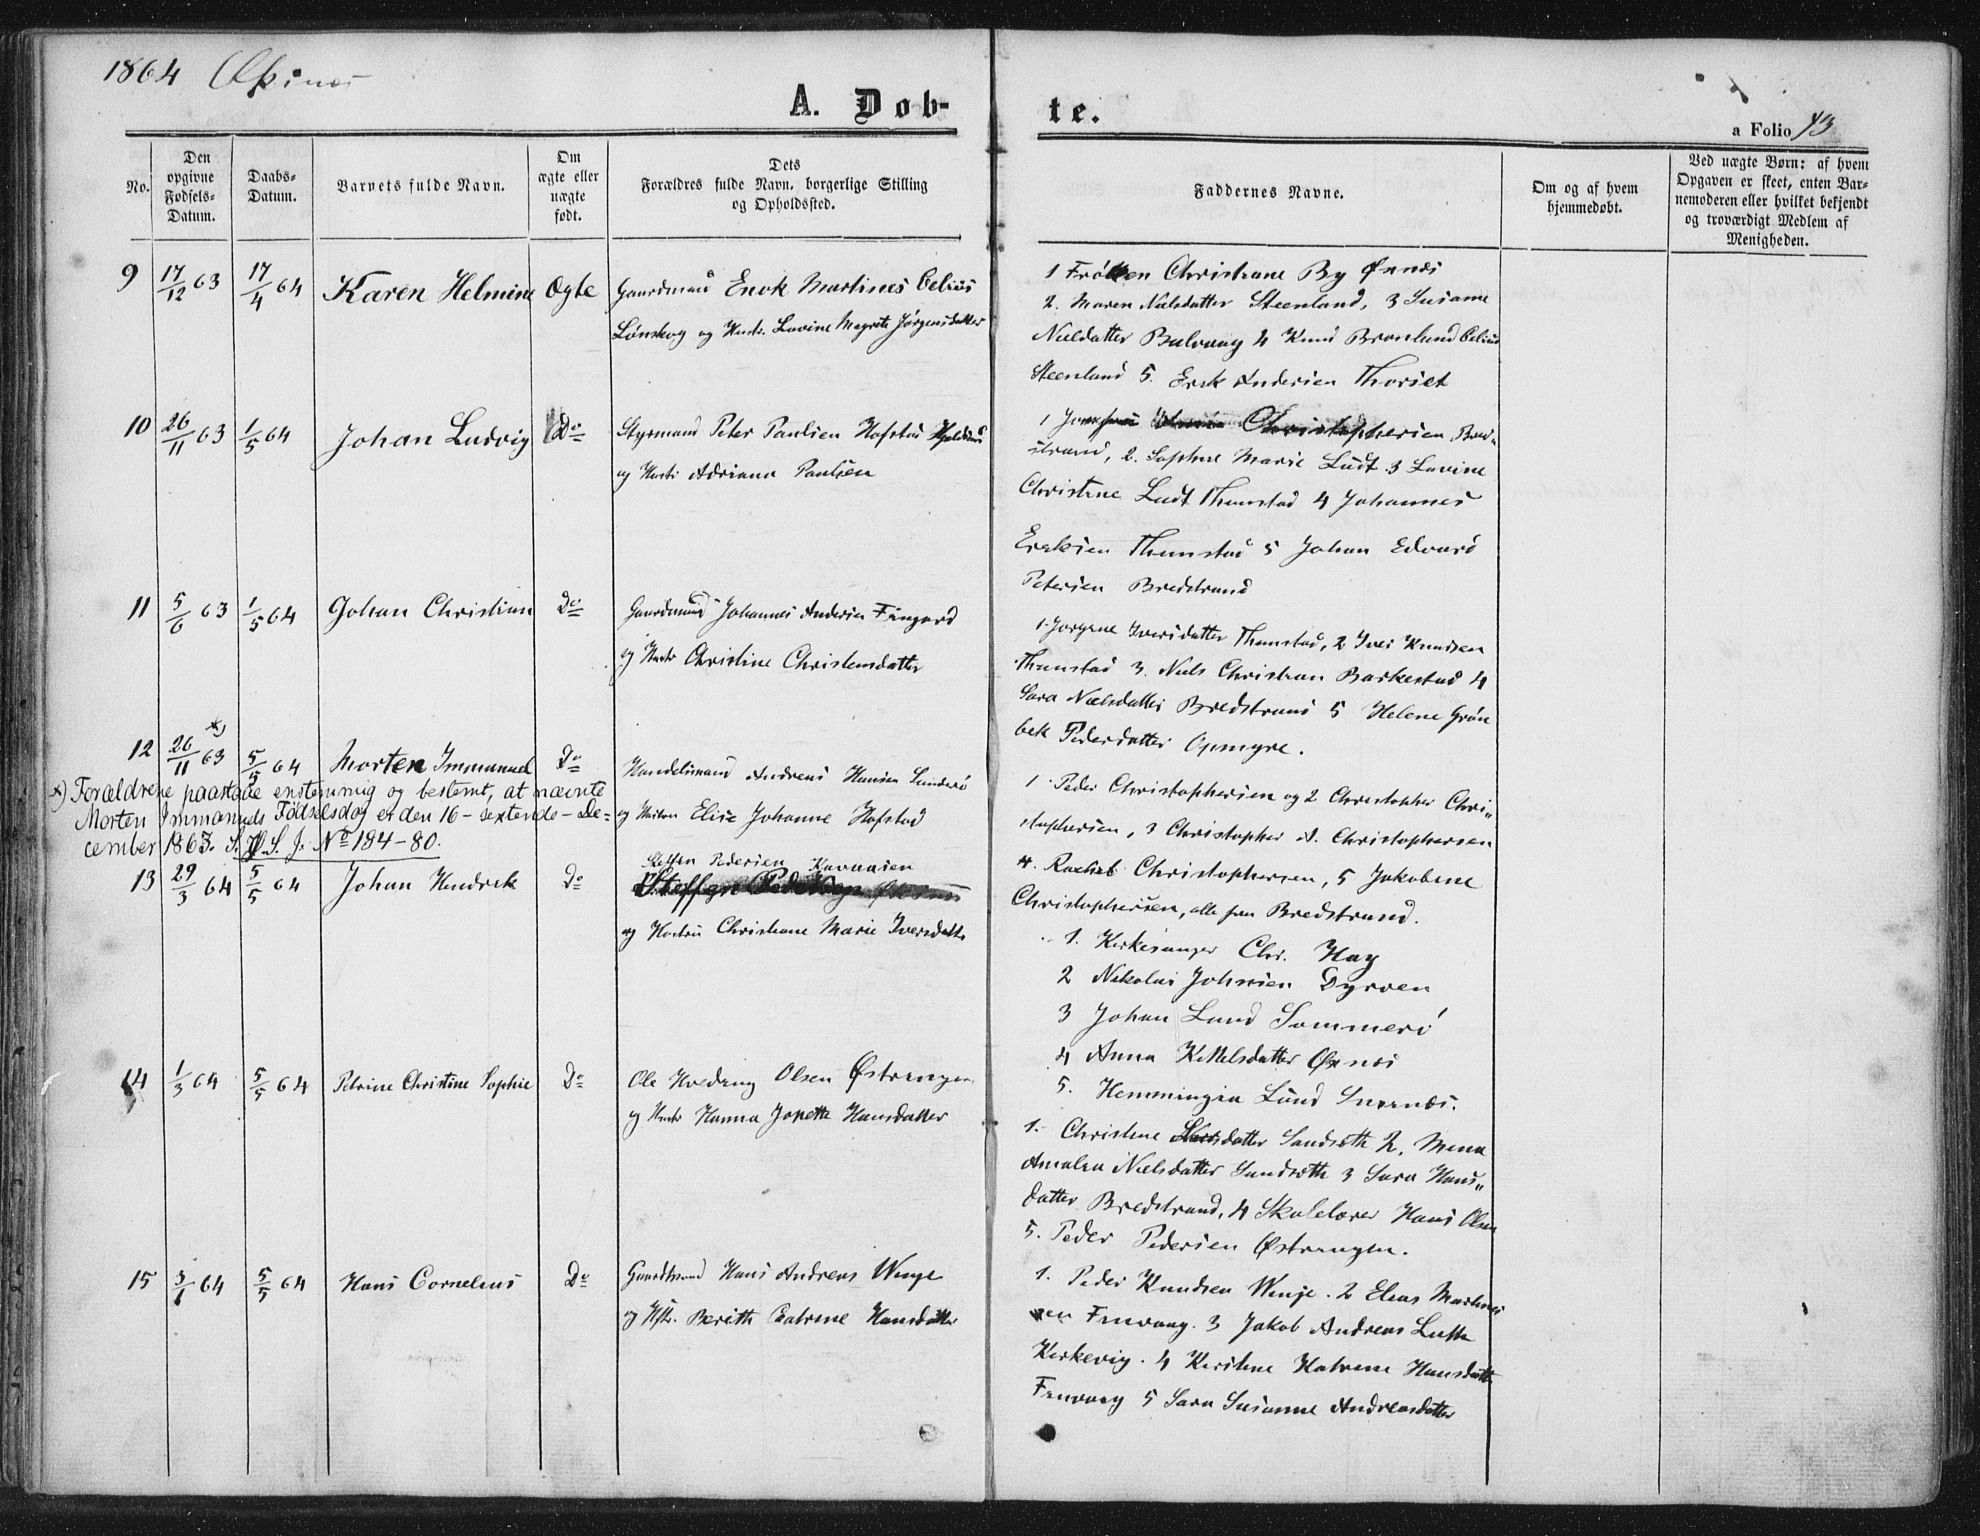 1864 Øksnes
A. Døb-
te.
a Folio 43
No.
Den opgivne Fødsels-Datum.
Daabs-Datum.
Barnets fulde Navn.
Om ægte eller uægte født.
Dets Forældres fulde Navn, borgerlige Stilling og Opholdssted.
Faddernes Navne.
Om og af hvem hjemmedøbt.
Ved uægte Børn: af hvem Opgaven er skeet, enten Barnemoderen eller hvilket bekjendt og troværdigt Medlem af Menigheden.
9 17/12 63 17/4 64 Karen Helmine Ægte Gaardmand Enok Martines Celius
Lønskog og Hustr. Lovine Magrete Jørgensdatter
1 Frøken Christiane By Øxnæs
2. Maren Nielsdatter Steenland, 3 Susanne
Nieldatter Bulvaag 4 Knud Bronlund Celius
Steenland 5. Erik Andersen Thorset
10 26/11 63 1/5 64 Johan Ludvig Do Styrmand Peter Paulsen Hofstad
og Hustr Adriana Paulsen
1 Jomfrue Christophersen Bred-
strand, 2. Sophie Marie Ludt 3 Lovine
Christine Ludt Thunstad 4 Johannes
Eriksen Thunstad 5 Johan Edvard
Petersen Bredstrand
11 5/6 63 1/5 64 Johan Christian Do Gaardmand Johannes Andersen Fingord
og Hustr Christine Christensdatter
1. Jorgine Iversdatter Thunstad, 2 Iver Knudsen
Thunstad 3. Niels Christian Barkestad 4
Sara Nielsdatter Bredstrand 5 Helene Grøn
bek Pedersdatter Opmyre.
12 26/11 63 x) 5/5 64 Morten Immanuel Do Handelsmand Andreas Hansen Sanderø
og Hustru Elise Johanne Hofstad
x) Forældrene paastaae enstemmig og bestemt, at nævnte
Morten Immanuels Fødselsdag er den 16 - sextende - De-
cember 1863. S. S. J. No 184-80.
1 Peder Christophersen og 2 Christopher Chri-
stophersen, 3 Christopher A. Christophersen
4. Rachel Christophersen, 5 Jakobine
Christophersen, alle fra Bredstrand.
13 29/3 64 5/5 64 Johan Hendrik Do Steffen Pedersen Kavaasen
Steffen Pedersen
og Hustru Christiane Marie Iversdatter
1. Kirkesanger Chr. Hay
2 Nikolai Johnsen Dyrøen
3 Johan Lund Sommerø
4 Anna Kittelsdatter Øxnæs
5. Hemmingia Lund Snarnæs.
14 1/3 64 5/5 64 Petrine Christine Sophie Do Ole Hveding Olsen Østrengen
og Hustr Hanna Jopette Hansdatter
1. Christine datter Sandseth 2. Mena
Amalia Nielsdatter Sandseth 3 Sara Hans-
datter Bredstrand, 4 Skolelærer Hans Olsen
5. Peder Pedersen Østrengen.
15 5/1 64 5/5 64 Hans Cornelius Do Gaardmand Hans Andreas Winje
og Hstr. Berith Catrine Hansdatter
1. Peder Knudsen Winje. 2 Elias Martinus
sen Finvaag. 3 Jakob Andreas Lutke
Kirkevig. 4 Kirstine Katrine Hansdatter
Finvaag 5 Sara Susanne Andreasdatter